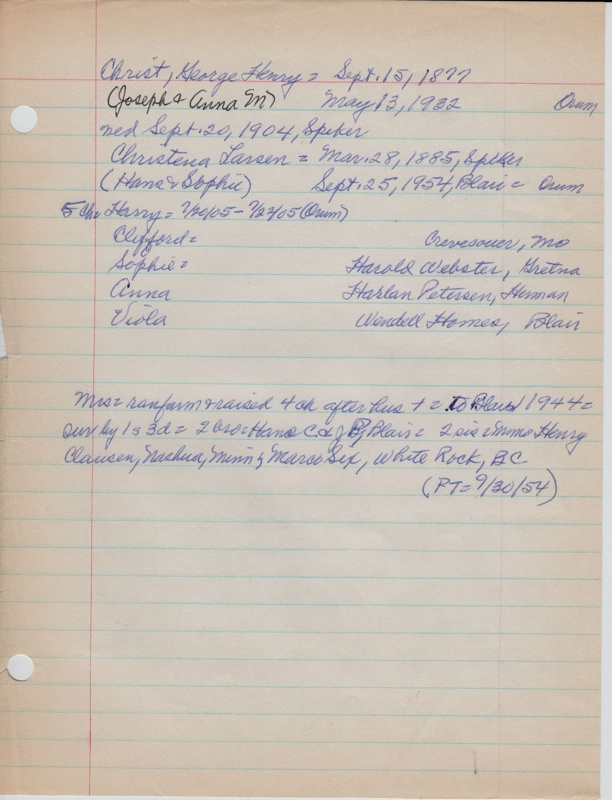 Christ, George Henry = Sept. 15, 1877
(Joseph & Anna M) May 13, 1932 Orum
med Sept. 20, 1904, Spiker
Christena Larsen = Mar. 28, 1885, Spiker
(Hans & Sophie) Sept. 25, 1954, Blair = Orum
5 Ch = Harry = 7/20/05 - 7/22/05 (Orum)
Clifford = Crevecouer, Mo
Sophie = Harold Webster, Gretna
Anna Harlan Petersen, Herman
Viola Wendell Homes, Blair
Mrs = ran farm & raised 4 ch after hus + = to Blair 1944 =
sur by 1 s 3 d = 2 bro = Hans C & Blair = 2 sis = Mmes Henry
Clausen, Nashua, Minn & Marco Six, White Rock, BC
(PT = 9/30/54)